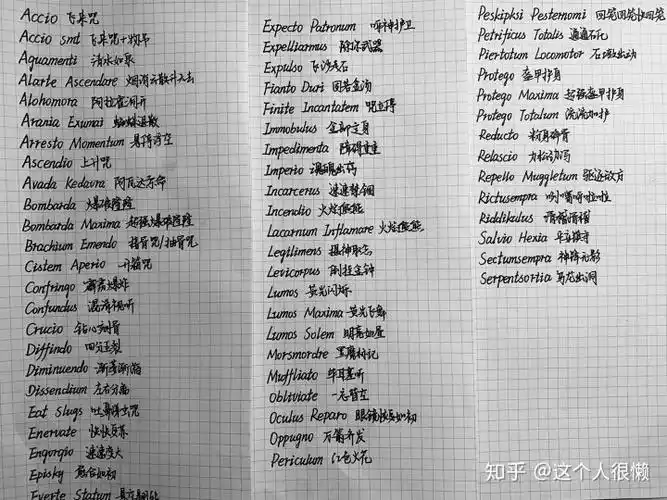 Accio 飞来咒
Accio smt 飞来咒+物品
Aquamenti 清水如泉
Alarte Ascendare 烟消云散升入去
Alohomora 阿拉霍洞开
Arania Exumai 蜘蛛退散
Arresto Momentum 悬停浮空
Ascendio 上升咒
Avada Kedavra 阿瓦达索命
Bombarda 爆破隆隆
Bombarda Maxima 超强爆破隆隆
Brachium Emendo 接骨咒/抽骨咒
Cistem Aperio 开箱咒
Confringo 霹雳爆炸
Confundus 混淆视听
Crucio 钻心剜骨
Diffindo 四分五裂
Diminuendo
Dissendium 左右分离
Eat Slugs
Enervate 快快复苏
Engorgio 速速变大
Episky 愈合如初
Everte Statum
Expecto Patronum 呼神护卫
Expelliarmus 除你武器
Expulso 飞沙走石
Fianto Duri 固若金汤
Finite Incantatem 咒立停
Immobulus 全部定身
Impedimenta 障碍重重
Imperio 魂魄出窍
Incarcerus 速速禁锢
Incendio 火焰熊熊
Lacarnum Inflamare 火焰熊熊
Legilimens 摄神取念
Levicorpus 倒挂金钟
Lumos 荧光闪烁
Lumos Maxima 荧光飞舞
Lumos Solem 明亮如昼
Morsmordre 黑魔标记
Muffliato 闭耳塞听
Obliviate 一忘皆空
Oculus Reparo 眼镜恢复如初
Oppugno 万箭齐发
Periculum 红色火花
Peskipksi Pesternomi
Petrificus Totalis 通通石化
Piertotum Locomotor 石墩出动
Protego 盔甲护身
Protego Maxima 超强盔甲护身
Protego Totalum
Reducto 粉身碎骨
Relascio 力松劲泻
Repello Muggletum 驱逐敌方
Rictusempra 咧嘴呼啦啦
Riddikulus 滑稽滑稽
Salvio Hexia
Sectumsempra 神锋无影
Serpentsortia 乌龙出洞
知乎 @这个人很懒